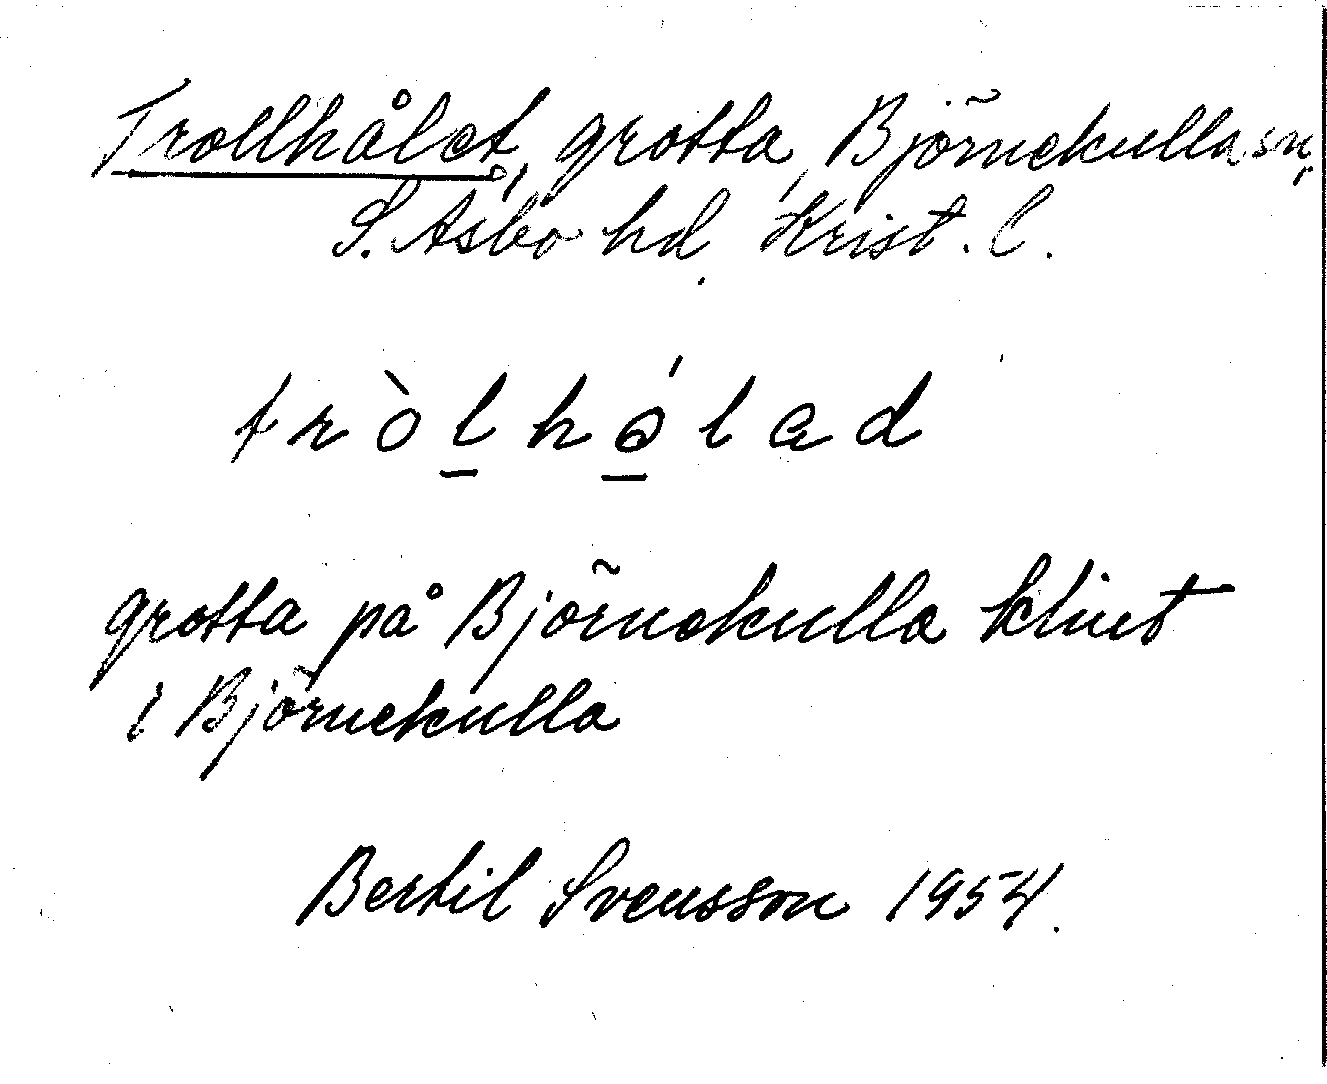 Trollhålet, grotta, Björnekulla sn,
S. Åsbo hd. Krist. l.
tròlhǻlad
grotta på Björnekulla klint
i Björnekulla
Bertil Svensson 1954.